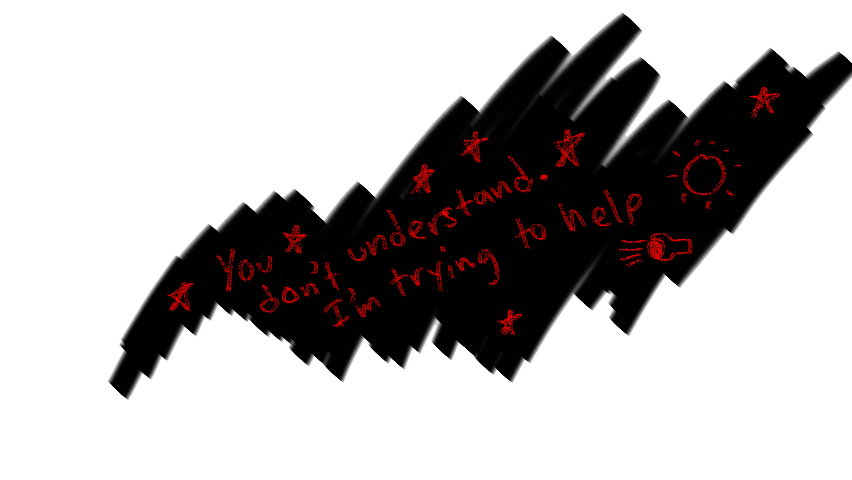 You
don't understand.
I'm trying to help